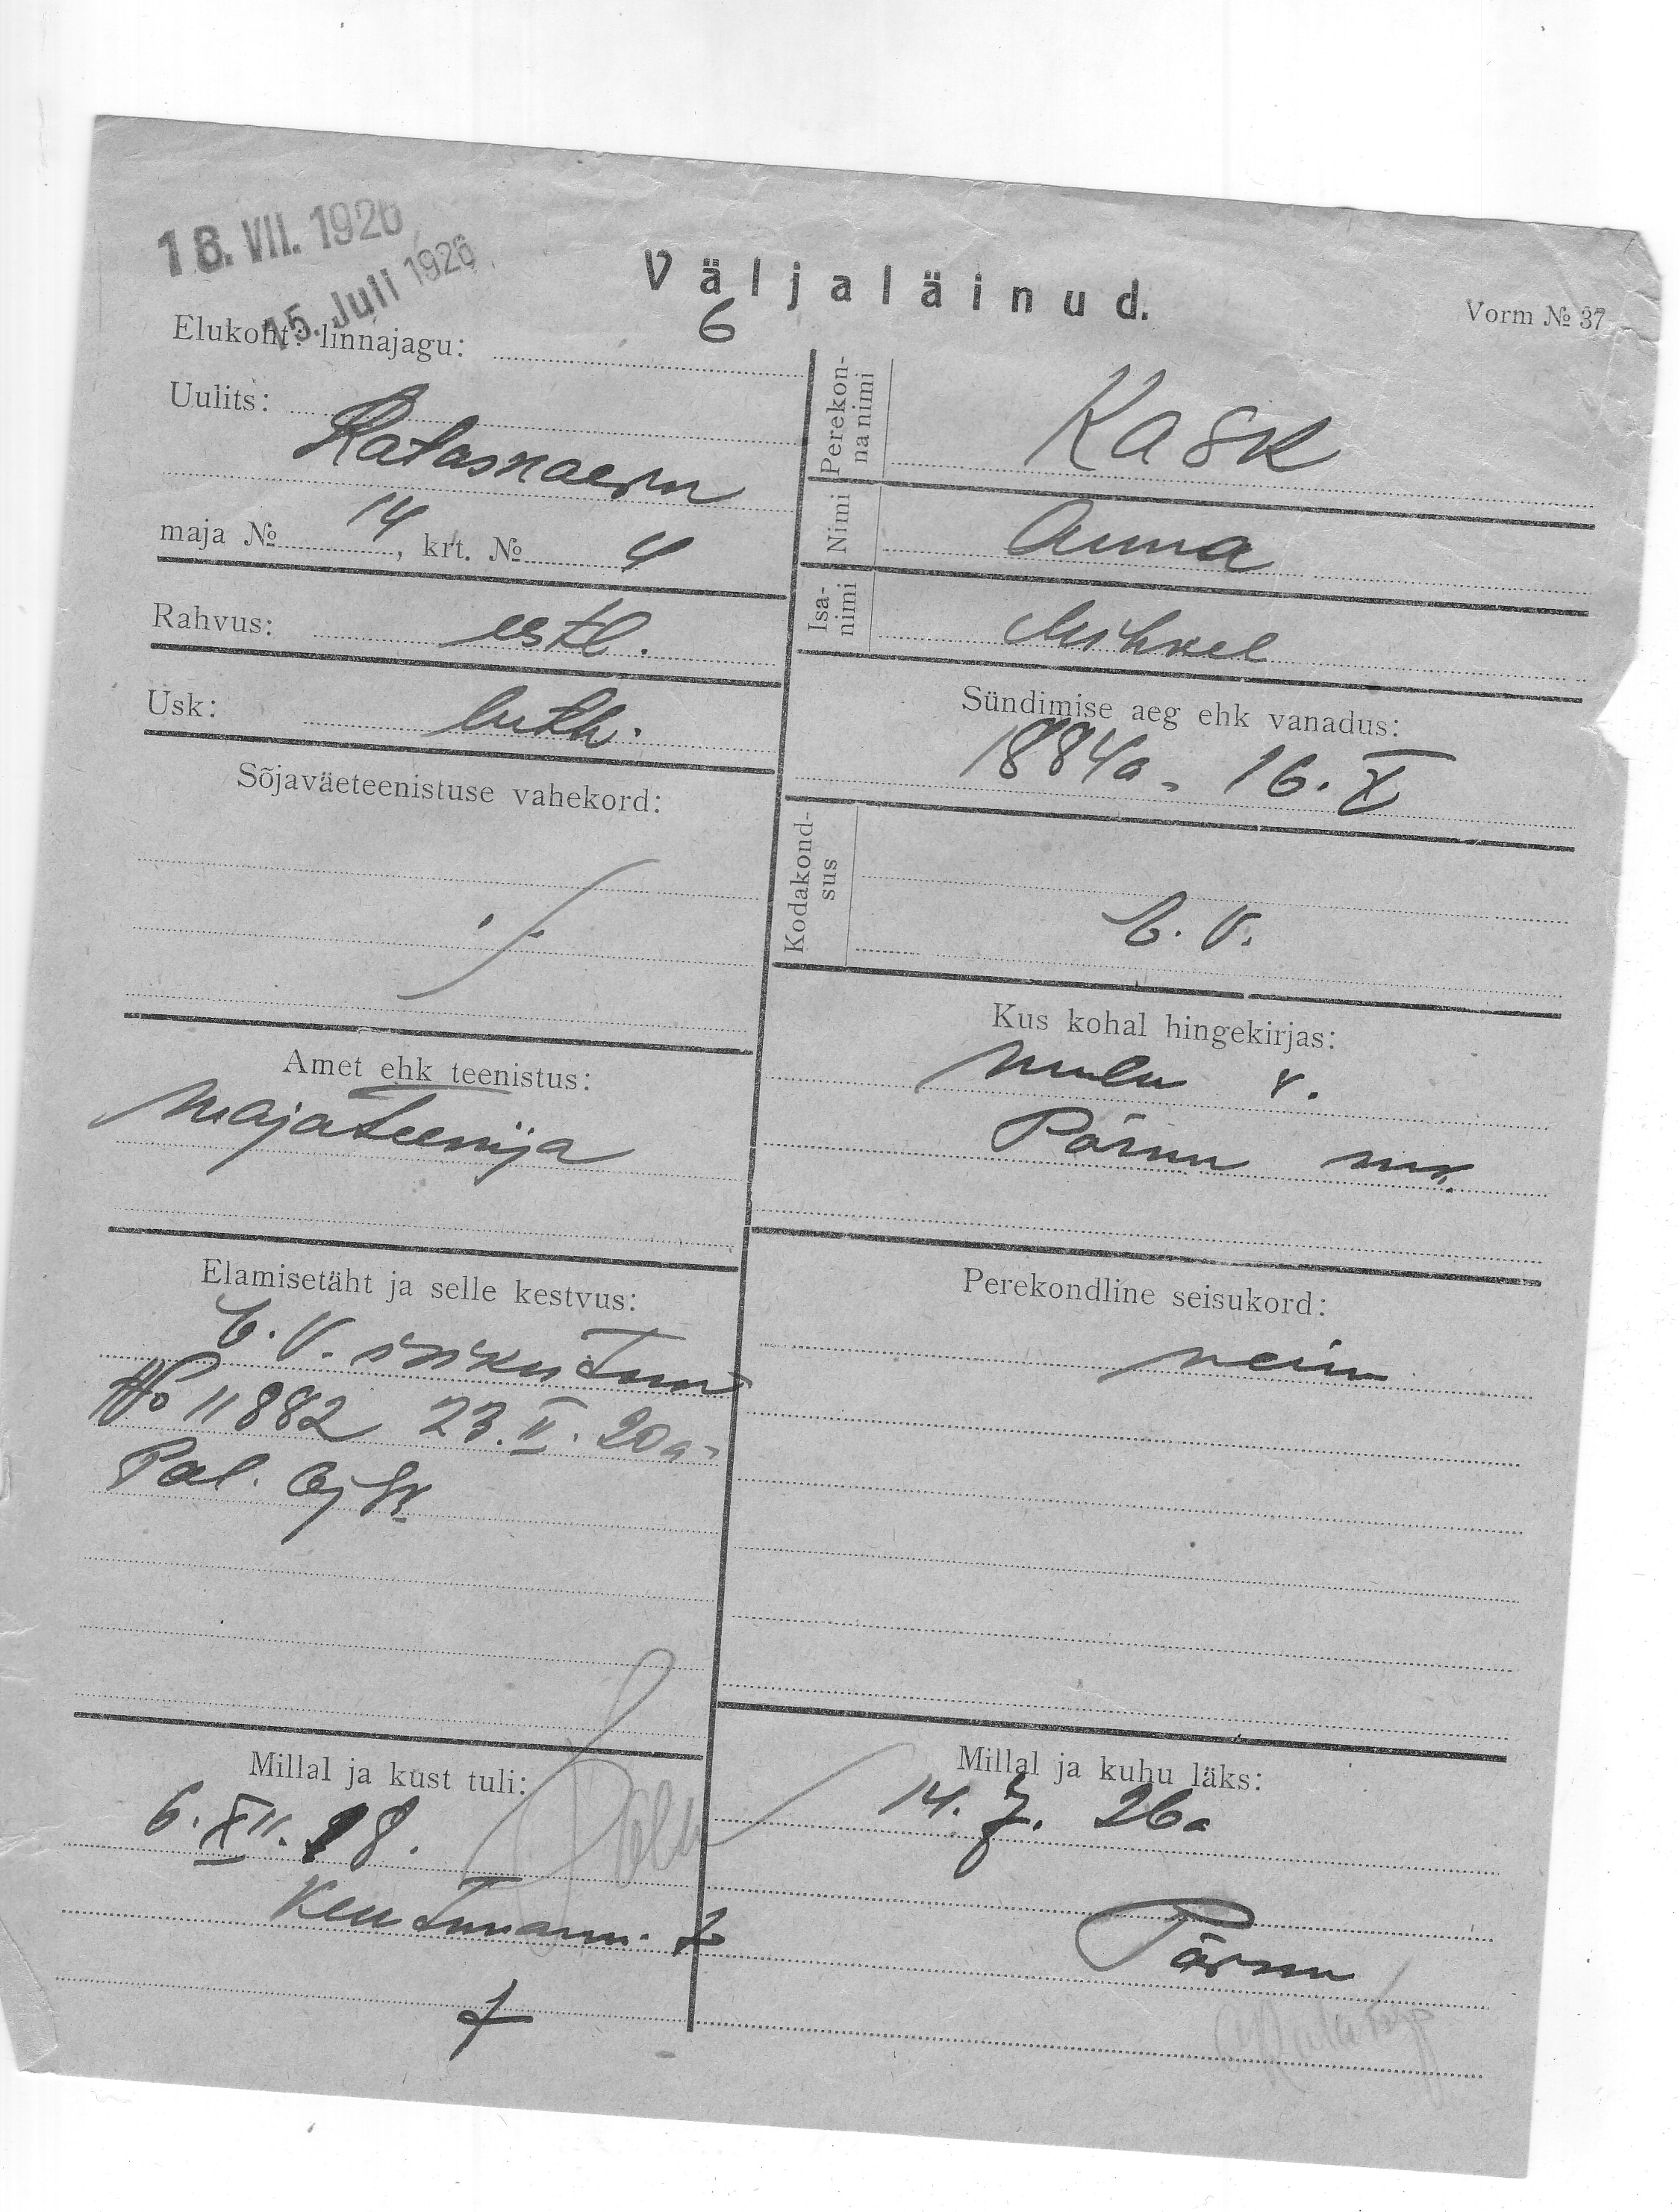 18. VII. 1926
15. Juli 1926
Väljaläinud.
Vorm № 37
Elukoht: linnajagu: 6
Uulits:
Rataskaevu
maja № 14, krt. № 4
Rahvus: estl.
Usk: luth.
Sõjaväeteenistuse vahekord:
Amet ehk teenistus:
Majateenija
Elamisetäht ja selle kestvus:
E. V. isikutunn
№ 11882 23. II. 20a.
Pol.
Millal ja kust tuli:
6. XII. 18.
Kentmann. 7
7
Perekonnanimi Kask
Nimi Anna
Isanimi Mihkel
Sündimise aeg ehk vanadus:
1884a. 16. X
Kodakondsus
E. V.
Kus kohal hingekirjas:
v.
Pärnu mk.
Perekondline seisukord:
neiu
Millal ja kuhu läks:
14. 7. 26a
Pärnu